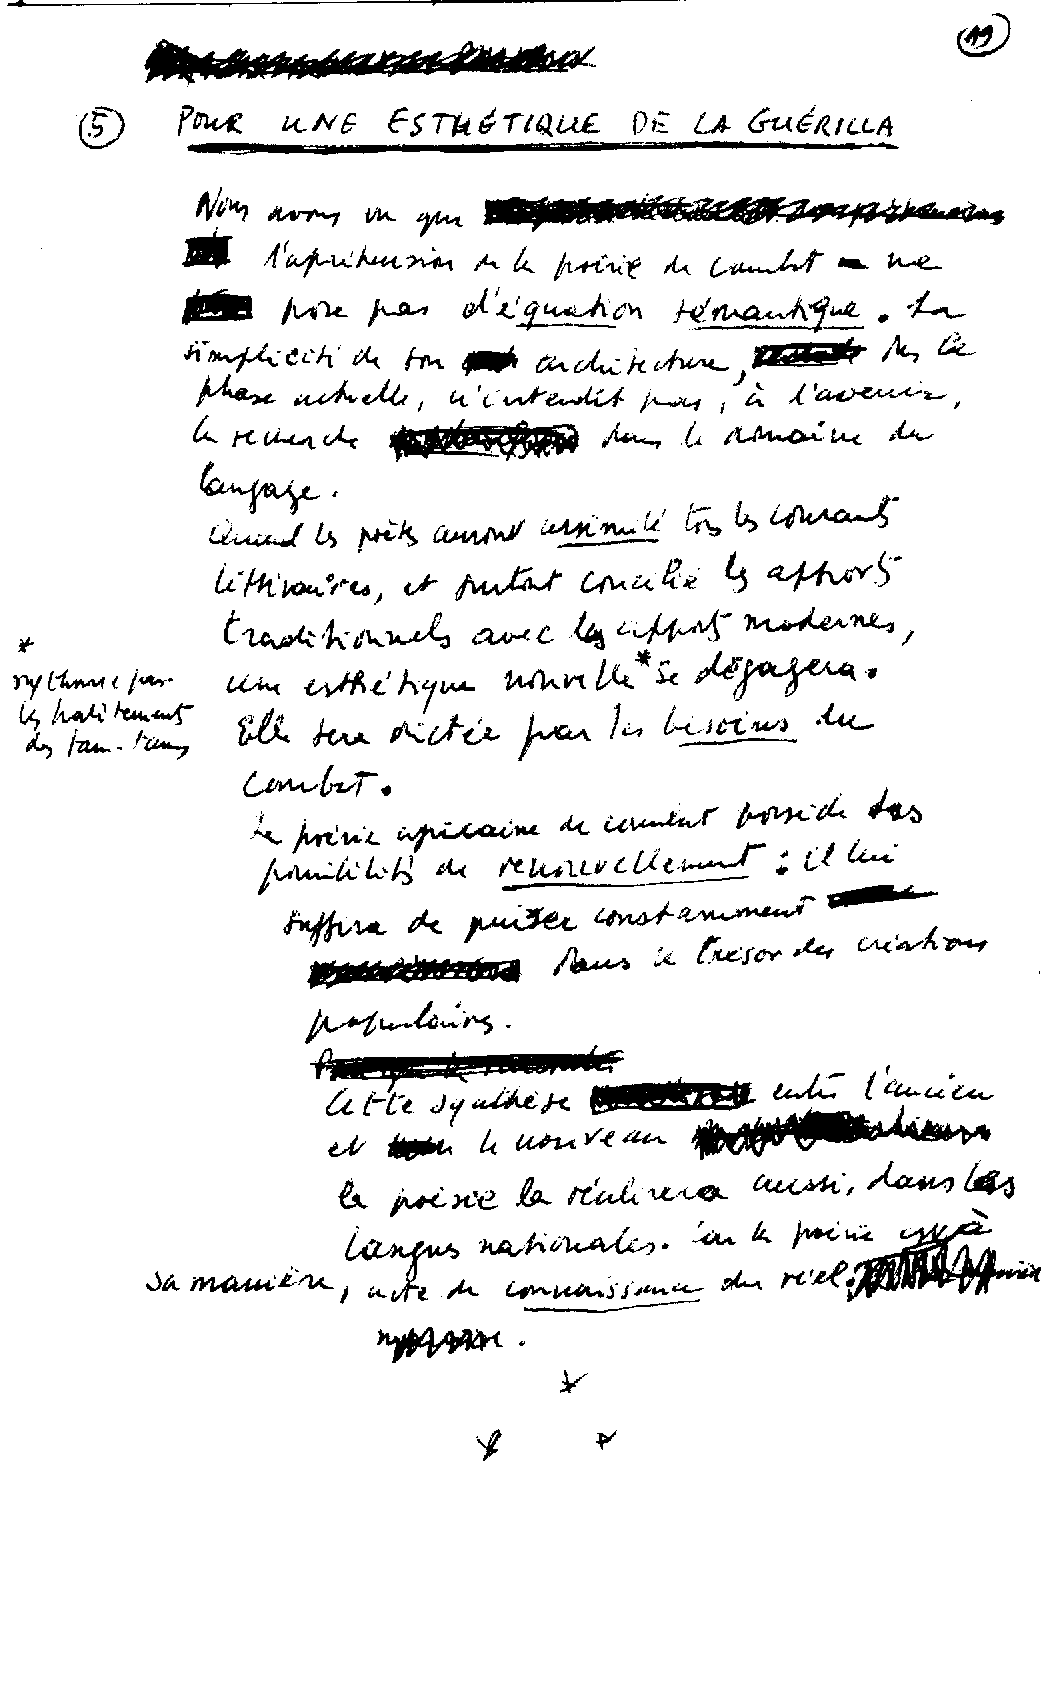 19
5 POUR UNE ESTHÉTIQUE DE LA GUÉRILLA
Nous avons vu que
l'apréhension de la poésie de combat - ne
pose pas d'équation sémantique. La
simplicité de son architecture, dès la
phase actuelle, n'interdit pas, à l'avenir,
la recherche dans le domaine du
langage.
Quand les poètes auront assimilé tous les courants
littéraires, et surtout concilié les apports
traditionnels avec les apports modernes,
une esthétique nouvelle * se dégagera.
*
rythmée par
les halètements
des tam-tams
Elle sera dictée par les besoins du
combat.
La poésie africaine de combat possède des
possibilités de renouvellement : il lui
suffira de puiser constamment
dans le trésor des créations
populaires.
Cette synthèse entre l'ancien
et le nouveau
la poésie la réalisera aussi, dans les
langues nationales. Car la poésie est à
sa manière, acte de connaissance du réel.